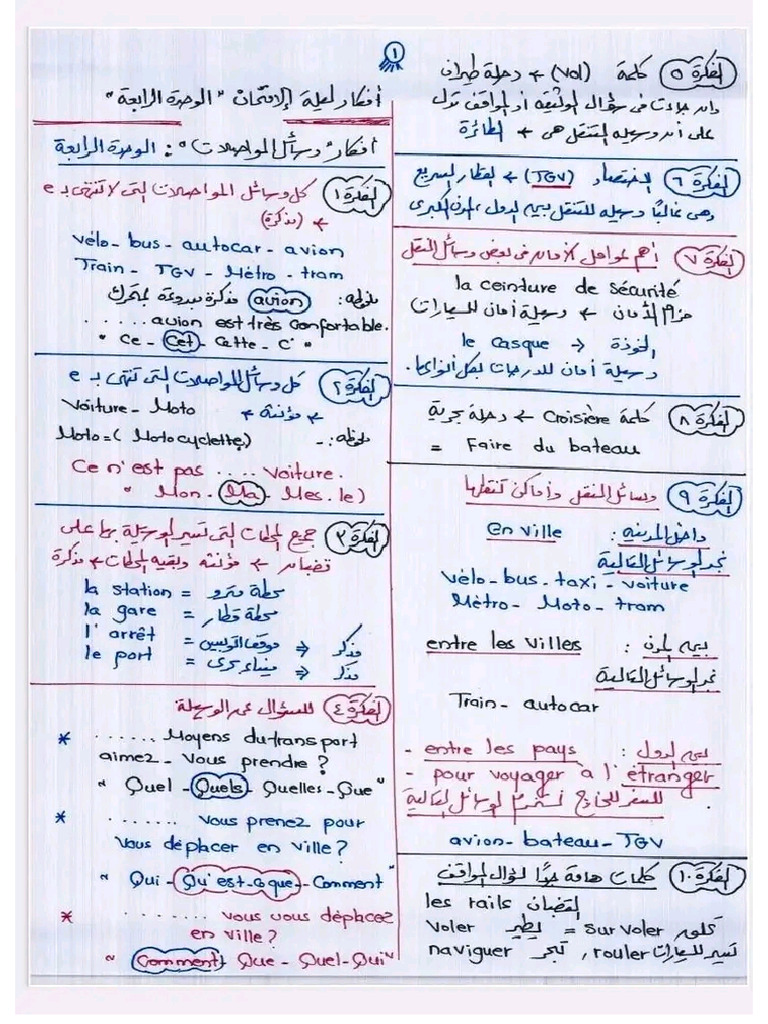 ١
أفكار لعلية الإمتحان "الوحدة الرابعة"
أفكار "وسائل المواصلات": الوحدة الرابعة
الفكرة ١ كل وسائل المواصلات التى لا تنتهى بـ e
← (مذكرة)
vélo - bus - autocar - avion
Train - TGV - Métro - tram
ملحوظة: avion مذكرة مبدوءة بمتحرك
...... avion est très confortable.
" Ce - Cet - Cette - C' "
الفكرة ٢ كل وسائل المواصلات التى تنتهى بـ e
← مؤنثة ← Voiture - Moto
ملحوظة: - Moto = (Motocyclette)
Ce n'est pas ..... voiture.
" Mon - Ma - Mes - le)
الفكرة ٣ جميع المحطات التى تسير الوسيلة بها على
قضبان ← مؤنثة وبقية المحطات ← مذكرة
la station = محطة مترو
la gare = محطة قطار
l'arrêt = موقف أتوبيس ⇐ مذكر
le port = ميناء بحرى ⇐ مذكر
الفكرة ٤ للسؤال عن الوسيلة
* ...... Moyens du transport
aimez - vous prendre ?
" Quel - Quels - Quelles - Que "
* ....... vous prenez pour
vous déplacer en ville ?
" Qui - Qu'est-ce que - Comment "
* ......... vous vous déplacez
en ville ?
" Comment - Que - Quel - Qui "
الفكرة ٥ كلمة (Vol) ← رحلة طيران
وإن جاءت فى سؤال الوثيقة أو المواقف تدل
على أن وسيلة التنقل هى ← الطائرة
الفكرة ٦ الاختصار (TGV) ← القطار السريع
وهى غالبًا وسيلة للتنقل بين الدول، المدن الكبرى
الفكرة ٧ أهم عوامل الأمان فى بعض وسائل التنقل
la ceinture de sécurité
حزام الأمان ← وسيلة أمان للسيارات
le casque → الخوذة
وسيلة أمان للدراجات بكل أنواعها.
الفكرة ٨ كلمة Croisière ← رحلة بحرية
= Faire du bateau
الفكرة ٩ وسائل التنقل وأماكن تنقلها
داخل المدينة : en ville
نجد الوسائل التالية
vélo - bus - taxi - voiture
Métro - Moto - tram
بين المدن : entre les villes
نجد الوسائل التالية
Train - autocar
بين الدول : entre les pays -
- pour voyager à l'étranger
للسفر للخارج نستخدم الوسائل التالية
avion - bateau - TGV
الفكرة ١٠ كلمات هامة جدًا لسؤال المواقف
les rails القضبان
voler يطير = survoler تحلق
naviguer تبحر , rouler تسير للسيارات